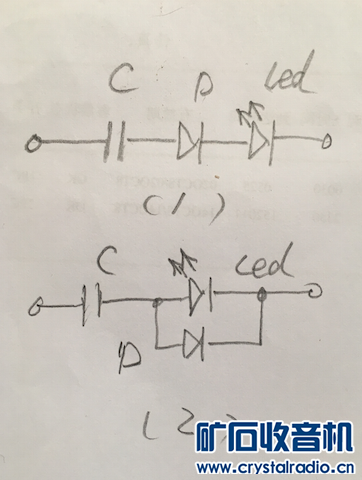 C D Led
(1)
C Led
D
(2)
矿石收音机
www.crystalradio.cn